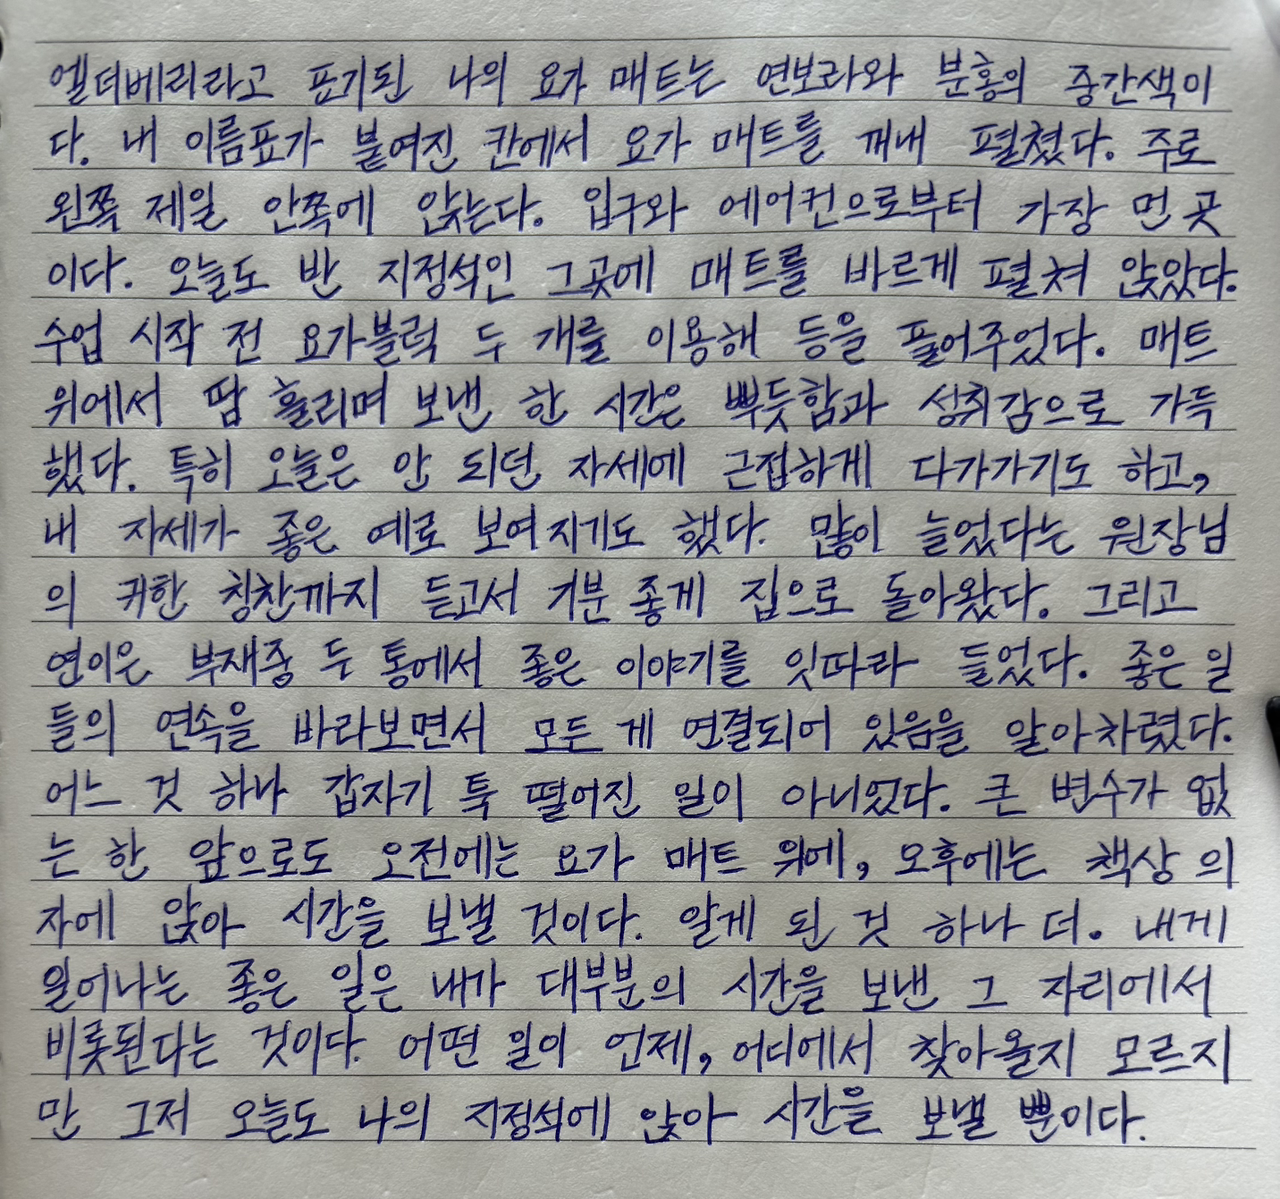 엘더베리라고 표기된 나의 요가 매트는 연보라와 분홍의 중간색이
다. 내 이름표가 붙여진 칸에서 요가 매트를 꺼내 펼쳤다. 주로
왼쪽 제일 안쪽에 앉는다. 입구와 에어컨으로부터 가장 먼 곳
이다. 오늘도 반 지정석인 그곳에 매트를 바르게 펼쳐 앉았다.
수업 시작 전 요가블럭 두 개를 이용해 등을 풀어주었다. 매트
위에서 땀 흘리며 보낸 한 시간은 뿌듯함과 성취감으로 가득
했다. 특히 오늘은 안 되던 자세에 근접하게 다가가기도 하고,
내 자세가 좋은 예로 보여지기도 했다. 많이 늘었다는 원장님
의 귀한 칭찬까지 듣고서 기분 좋게 집으로 돌아왔다. 그리고
연이은 부재중 두 통에서 좋은 이야기를 잇따라 들었다. 좋은 일
들의 연속을 바라보면서 모든 게 연결되어 있음을 알아차렸다.
어느 것 하나 갑자기 툭 떨어진 일이 아니었다. 큰 변수가 없
는 한 앞으로도 오전에는 요가 매트 위에, 오후에는 책상 의
자에 앉아 시간을 보낼 것이다. 알게 된 것 하나 더. 내게
일어나는 좋은 일은 내가 대부분의 시간을 보낸 그 자리에서
비롯된다는 것이다. 어떤 일이 언제, 어디에서 찾아올지 모르지
만 그저 오늘도 나의 지정석에 앉아 시간을 보낼 뿐이다.